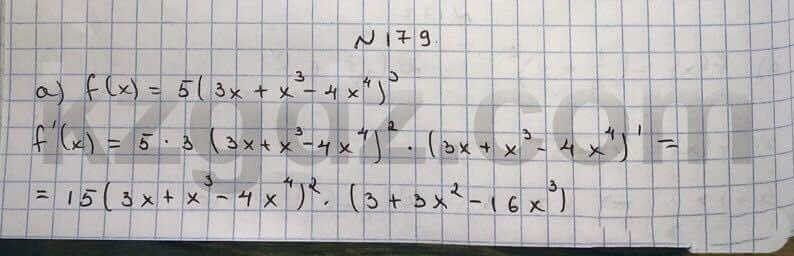 N 179.
а) f(x) = 5(3x + x³ - 4x⁴)³
f'(x) = 5 · 3 (3x + x³ - 4x⁴)² · (3x + x³ - 4x⁴)' =
= 15(3x + x³ - 4x⁴)² · (3 + 3x² - 16x³)
kzgdz.com